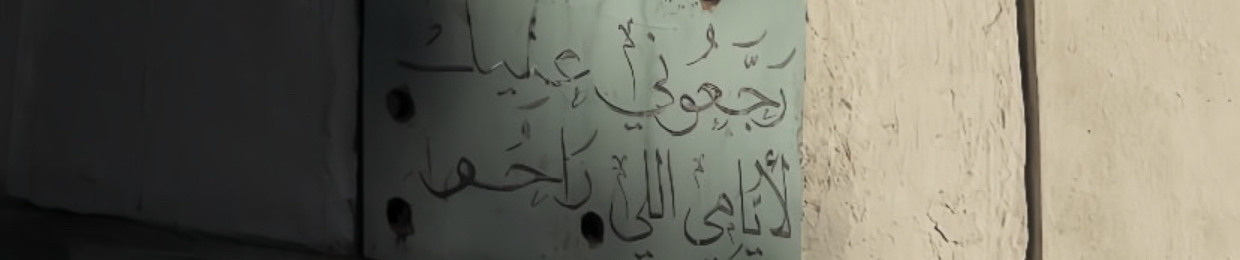 رَجَّعُوني عليك
لأيّامي اللي رَاحُوا